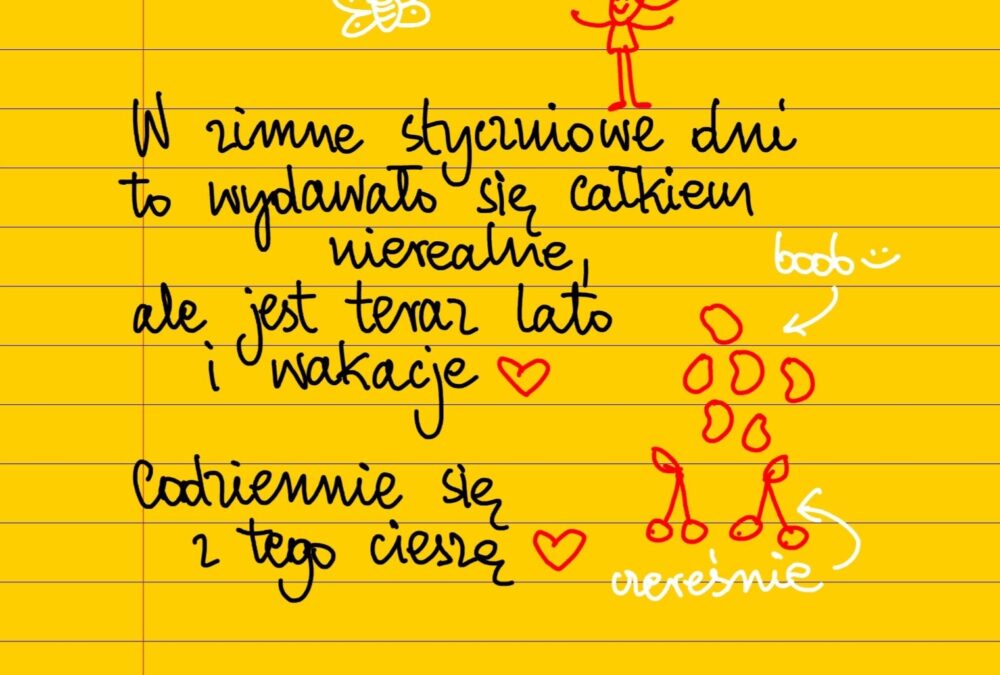 W zimne styczniowe dni
to wydawało się całkiem
nierealne,
ale jest teraz lato
i wakacje
boob
Codziennie się
z tego cieszę
czereśnie